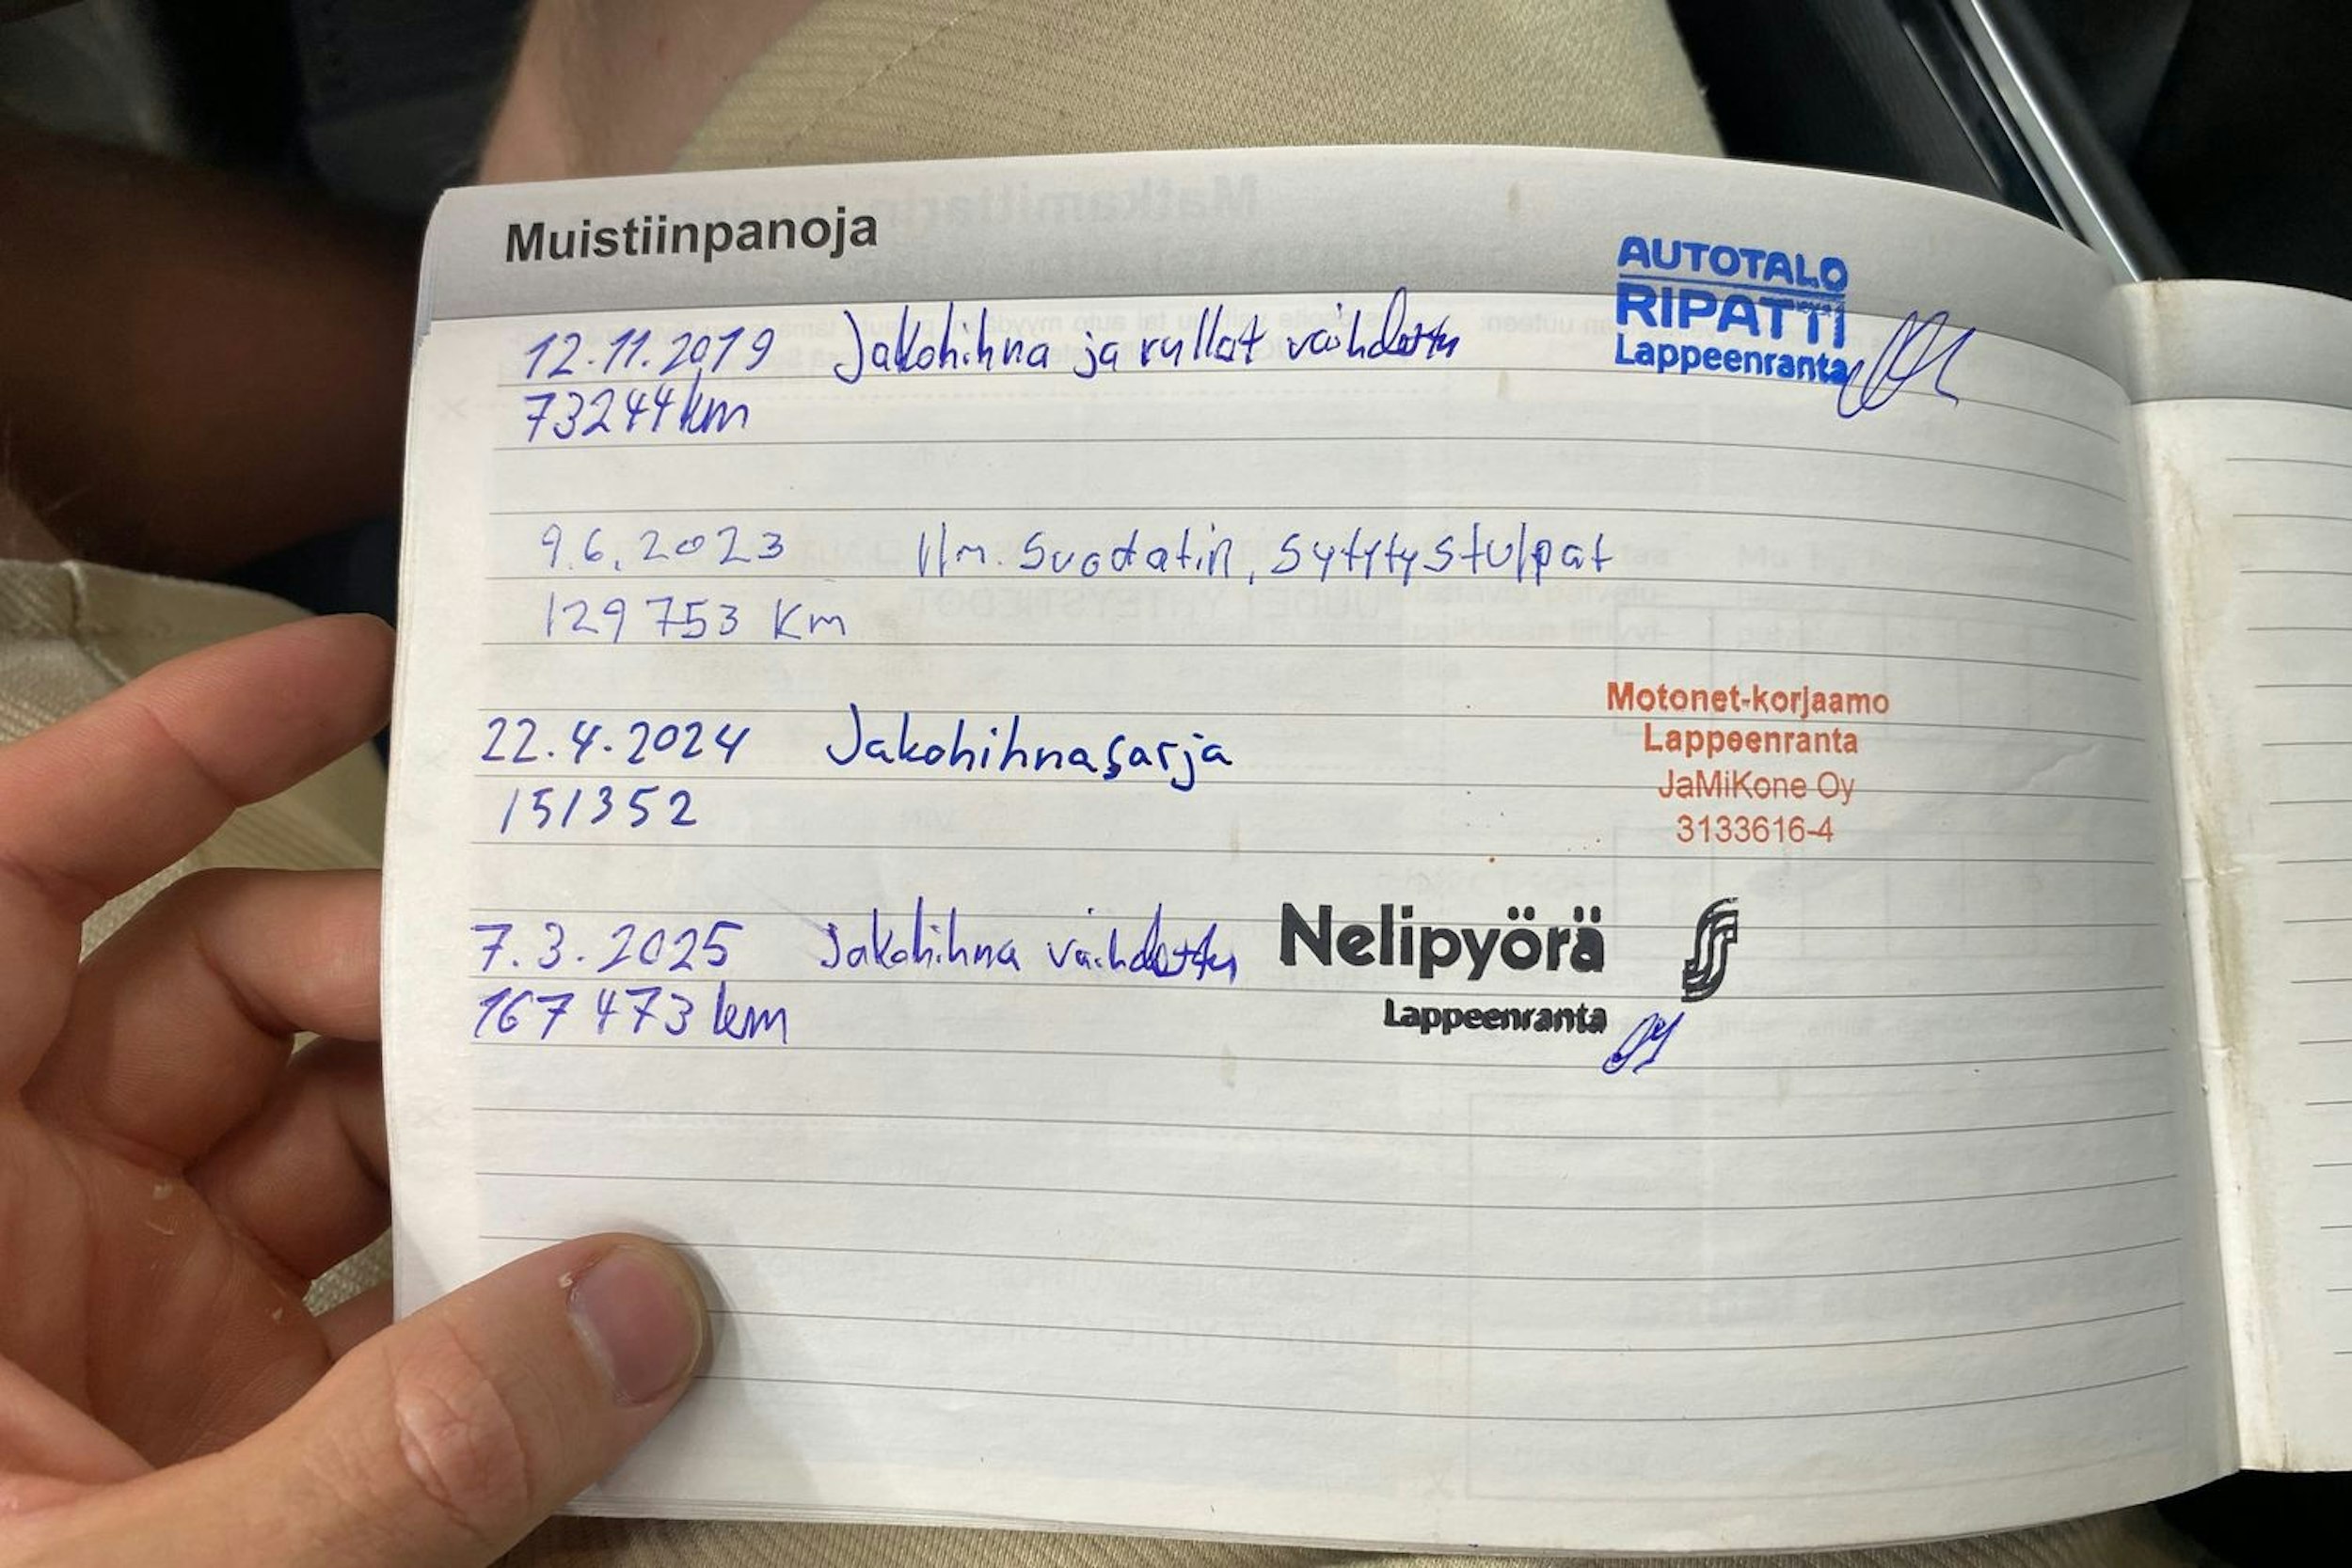 Muistiinpanoja
AUTOTALO
RIPATTI
Lappeenranta
12.11.2019 Jakohihna ja rullat vaihdettu
73244 km
9.6.2023 Ilm. Suodatin, Sytytystulpat
129 753 Km
22.4.2024 Jakohihnasarja
151352
Motonet-korjaamo
Lappeenranta
JaMiKone Oy
3133616-4
7.3.2025 Jakohihna vaihdettu
167 473 km
Nelipyörä
Lappeenranta